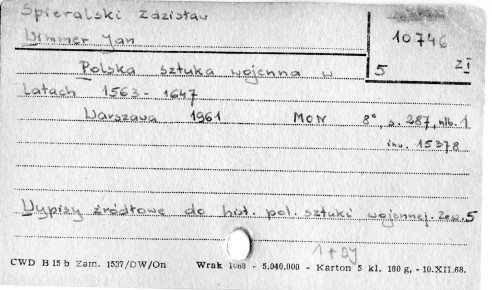 Spieralski Zdzisław
Wimmer Jan
10746
ZI
5
Polska sztuka wojenna w
latach 1563-1647
Warszawa 1961 MON 8°, s. 287, nlb. 1
inw. 15378
Wypisy źródłowe do hist. pol. sztuki wojennej. Zesz. 5
1 +
CWD B 15 b Zam. 1537/DW/On Wrak 1068 - 5.040.000 - Karton 5 kl. 180 g, - 10.XII.68.